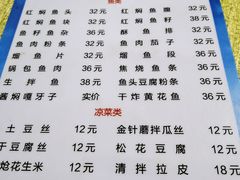 鱼类
红焖鱼头 32元 红焖鱼圈 32元
红焖鱼块 32元 红焖鱼籽 38元
鱼籽鱼杂 36元 酥鱼排 32元
鱼肉粉条 32元 鱼肉茄子 32元
熘鱼片 32元 熘鱼段 32元
锅包鱼肉 36元 焦烧鱼条 36元
生拌鱼 38元 鱼头豆腐粉条 36元
酱焖嘎牙子 实价 干炸黄花鱼 36元
凉菜类
土豆丝 12元 金针蘑拌瓜丝 12元
干豆腐丝 12元 松花豆腐 12元
炝花生米 12元 清拌拉皮 18元